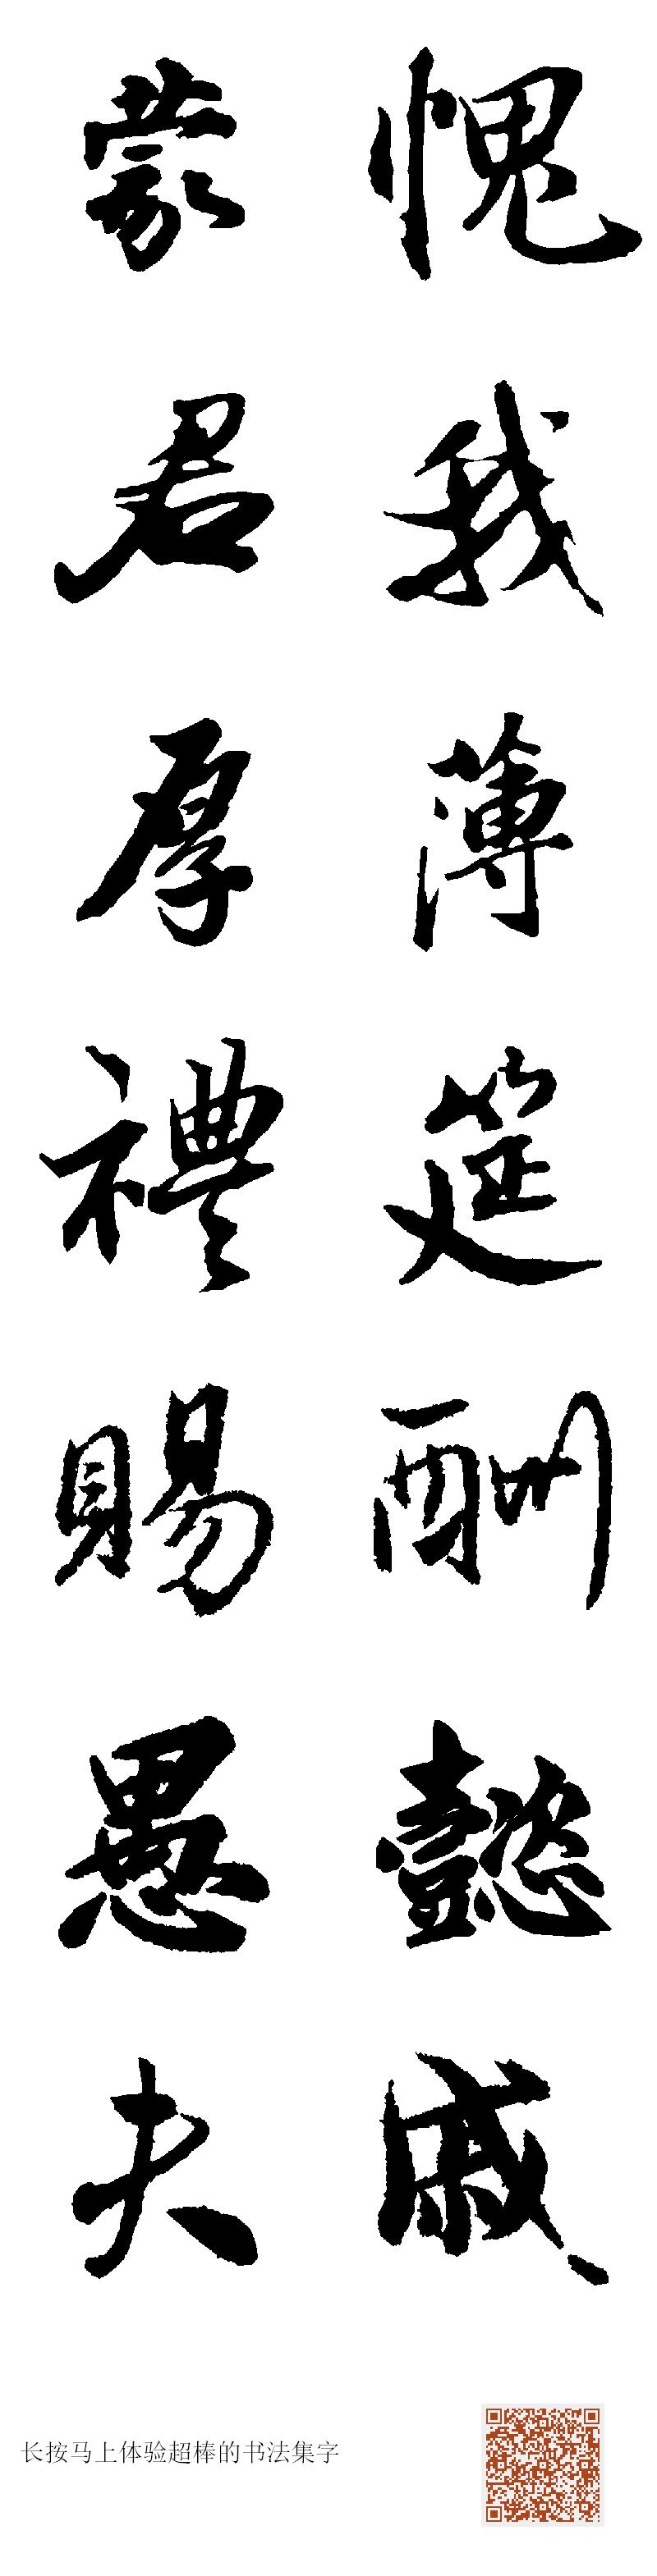 愧我薄筵酬懿戚
蒙君厚禮賜愚夫
长按马上体验超棒的书法集字